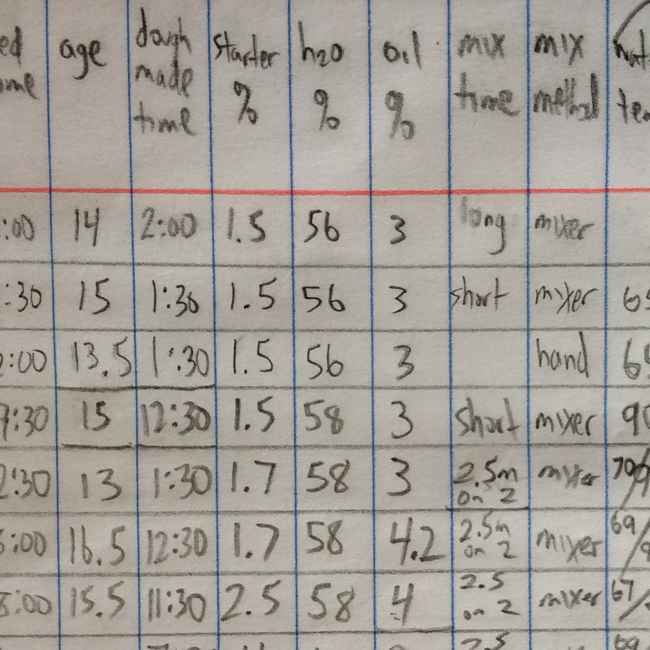 ed age dough starter h2o oil mix mix
ome made % % % time method
time
:00 14 2:00 1.5 56 3 long mixer
:30 15 1:30 1.5 56 3 short mixer
:00 13.5 1:30 1.5 56 3 hand
:30 15 12:30 1.5 58 3 short mixer 90
2:30 13 1:30 1.7 58 3 2.5m on 2 mixer
:00 16.5 12:30 1.7 58 4.2 2.5m on 2 mixer 69/
8:00 15.5 11:30 2.5 58 4 2.5 on 2 mixer 67/
2.5